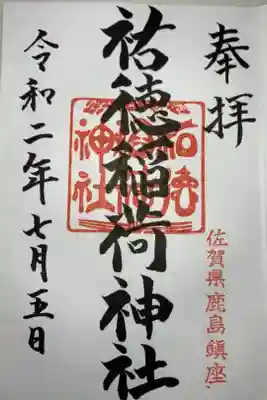 奉拝
佐賀県鹿島鎮座
祐徳稲荷神社
祐徳
神社
令和二年七月五日